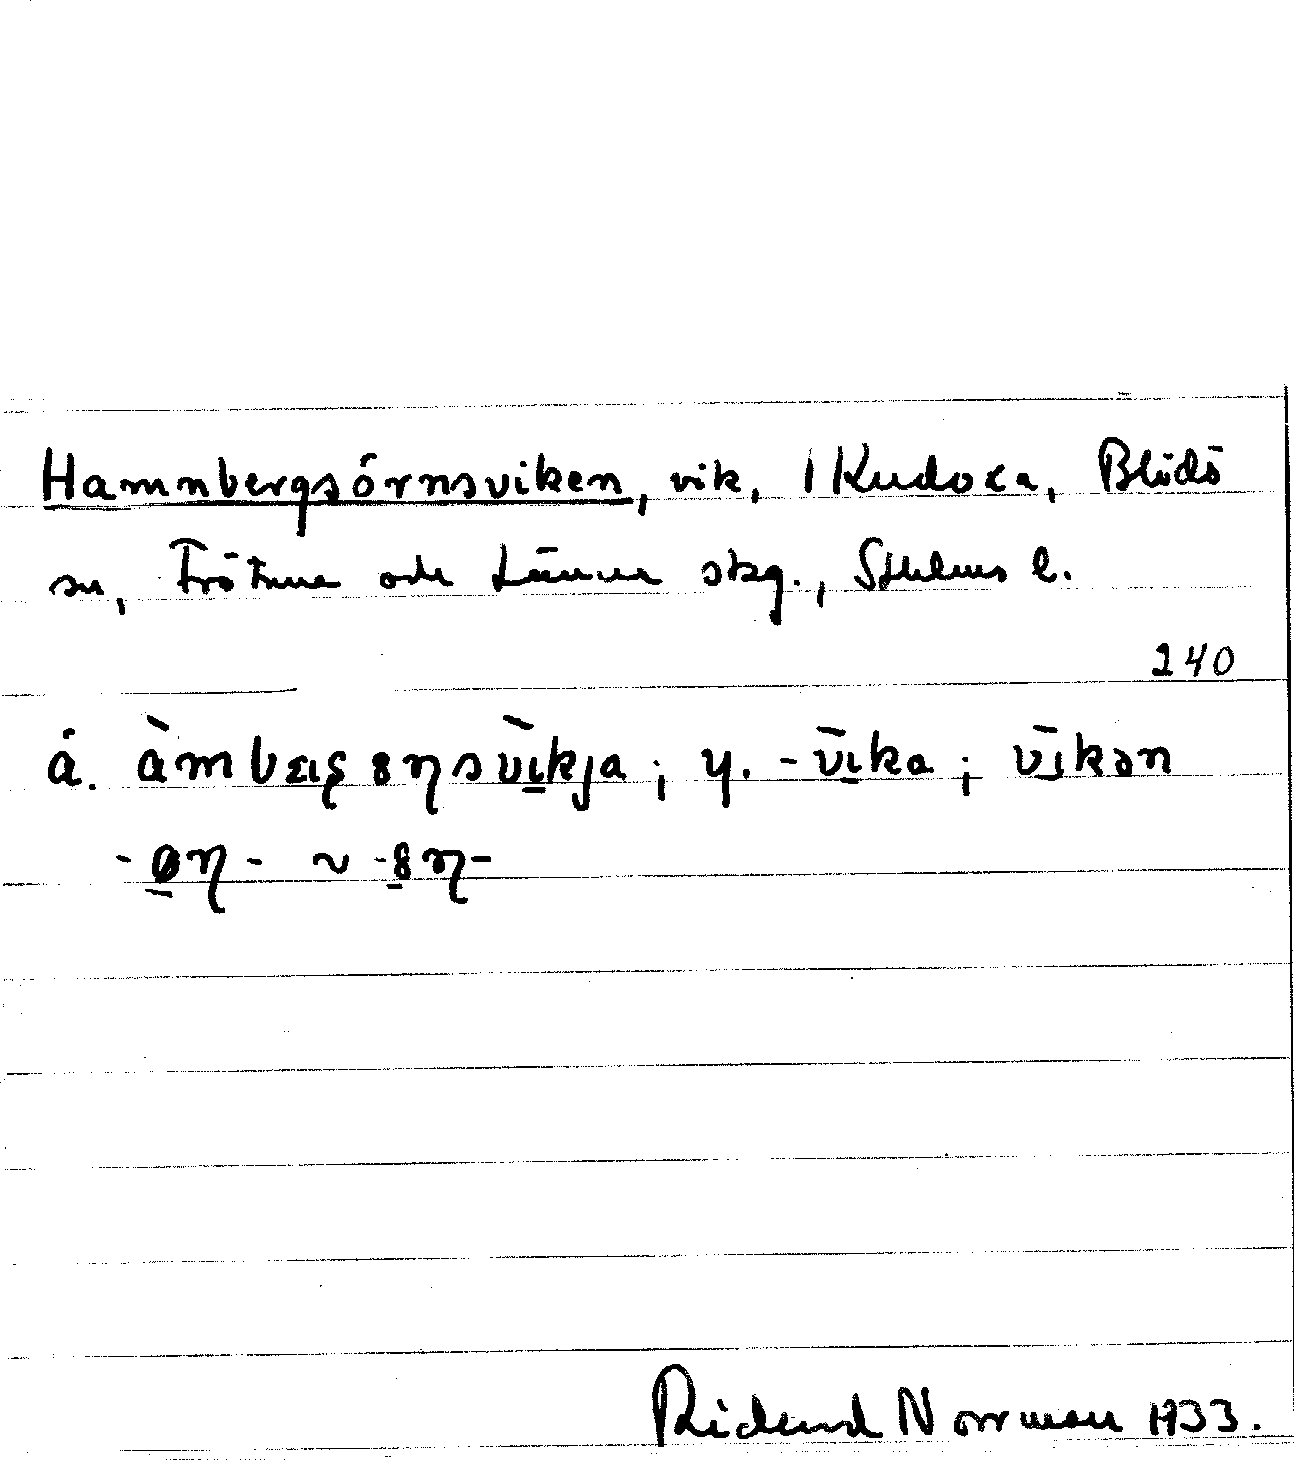 Hamnbergsörnsviken, vik, 1 Kudoxa, Blidö
sn, Frötuna och Länna skg., Sthlms l.
240
å. àmbɛɩʂ 8ηsv̀ɩkja; y. -v̄ɩka; v̄ɩkən
-øη- ~ -8η-
Rickard Norrman 1933.